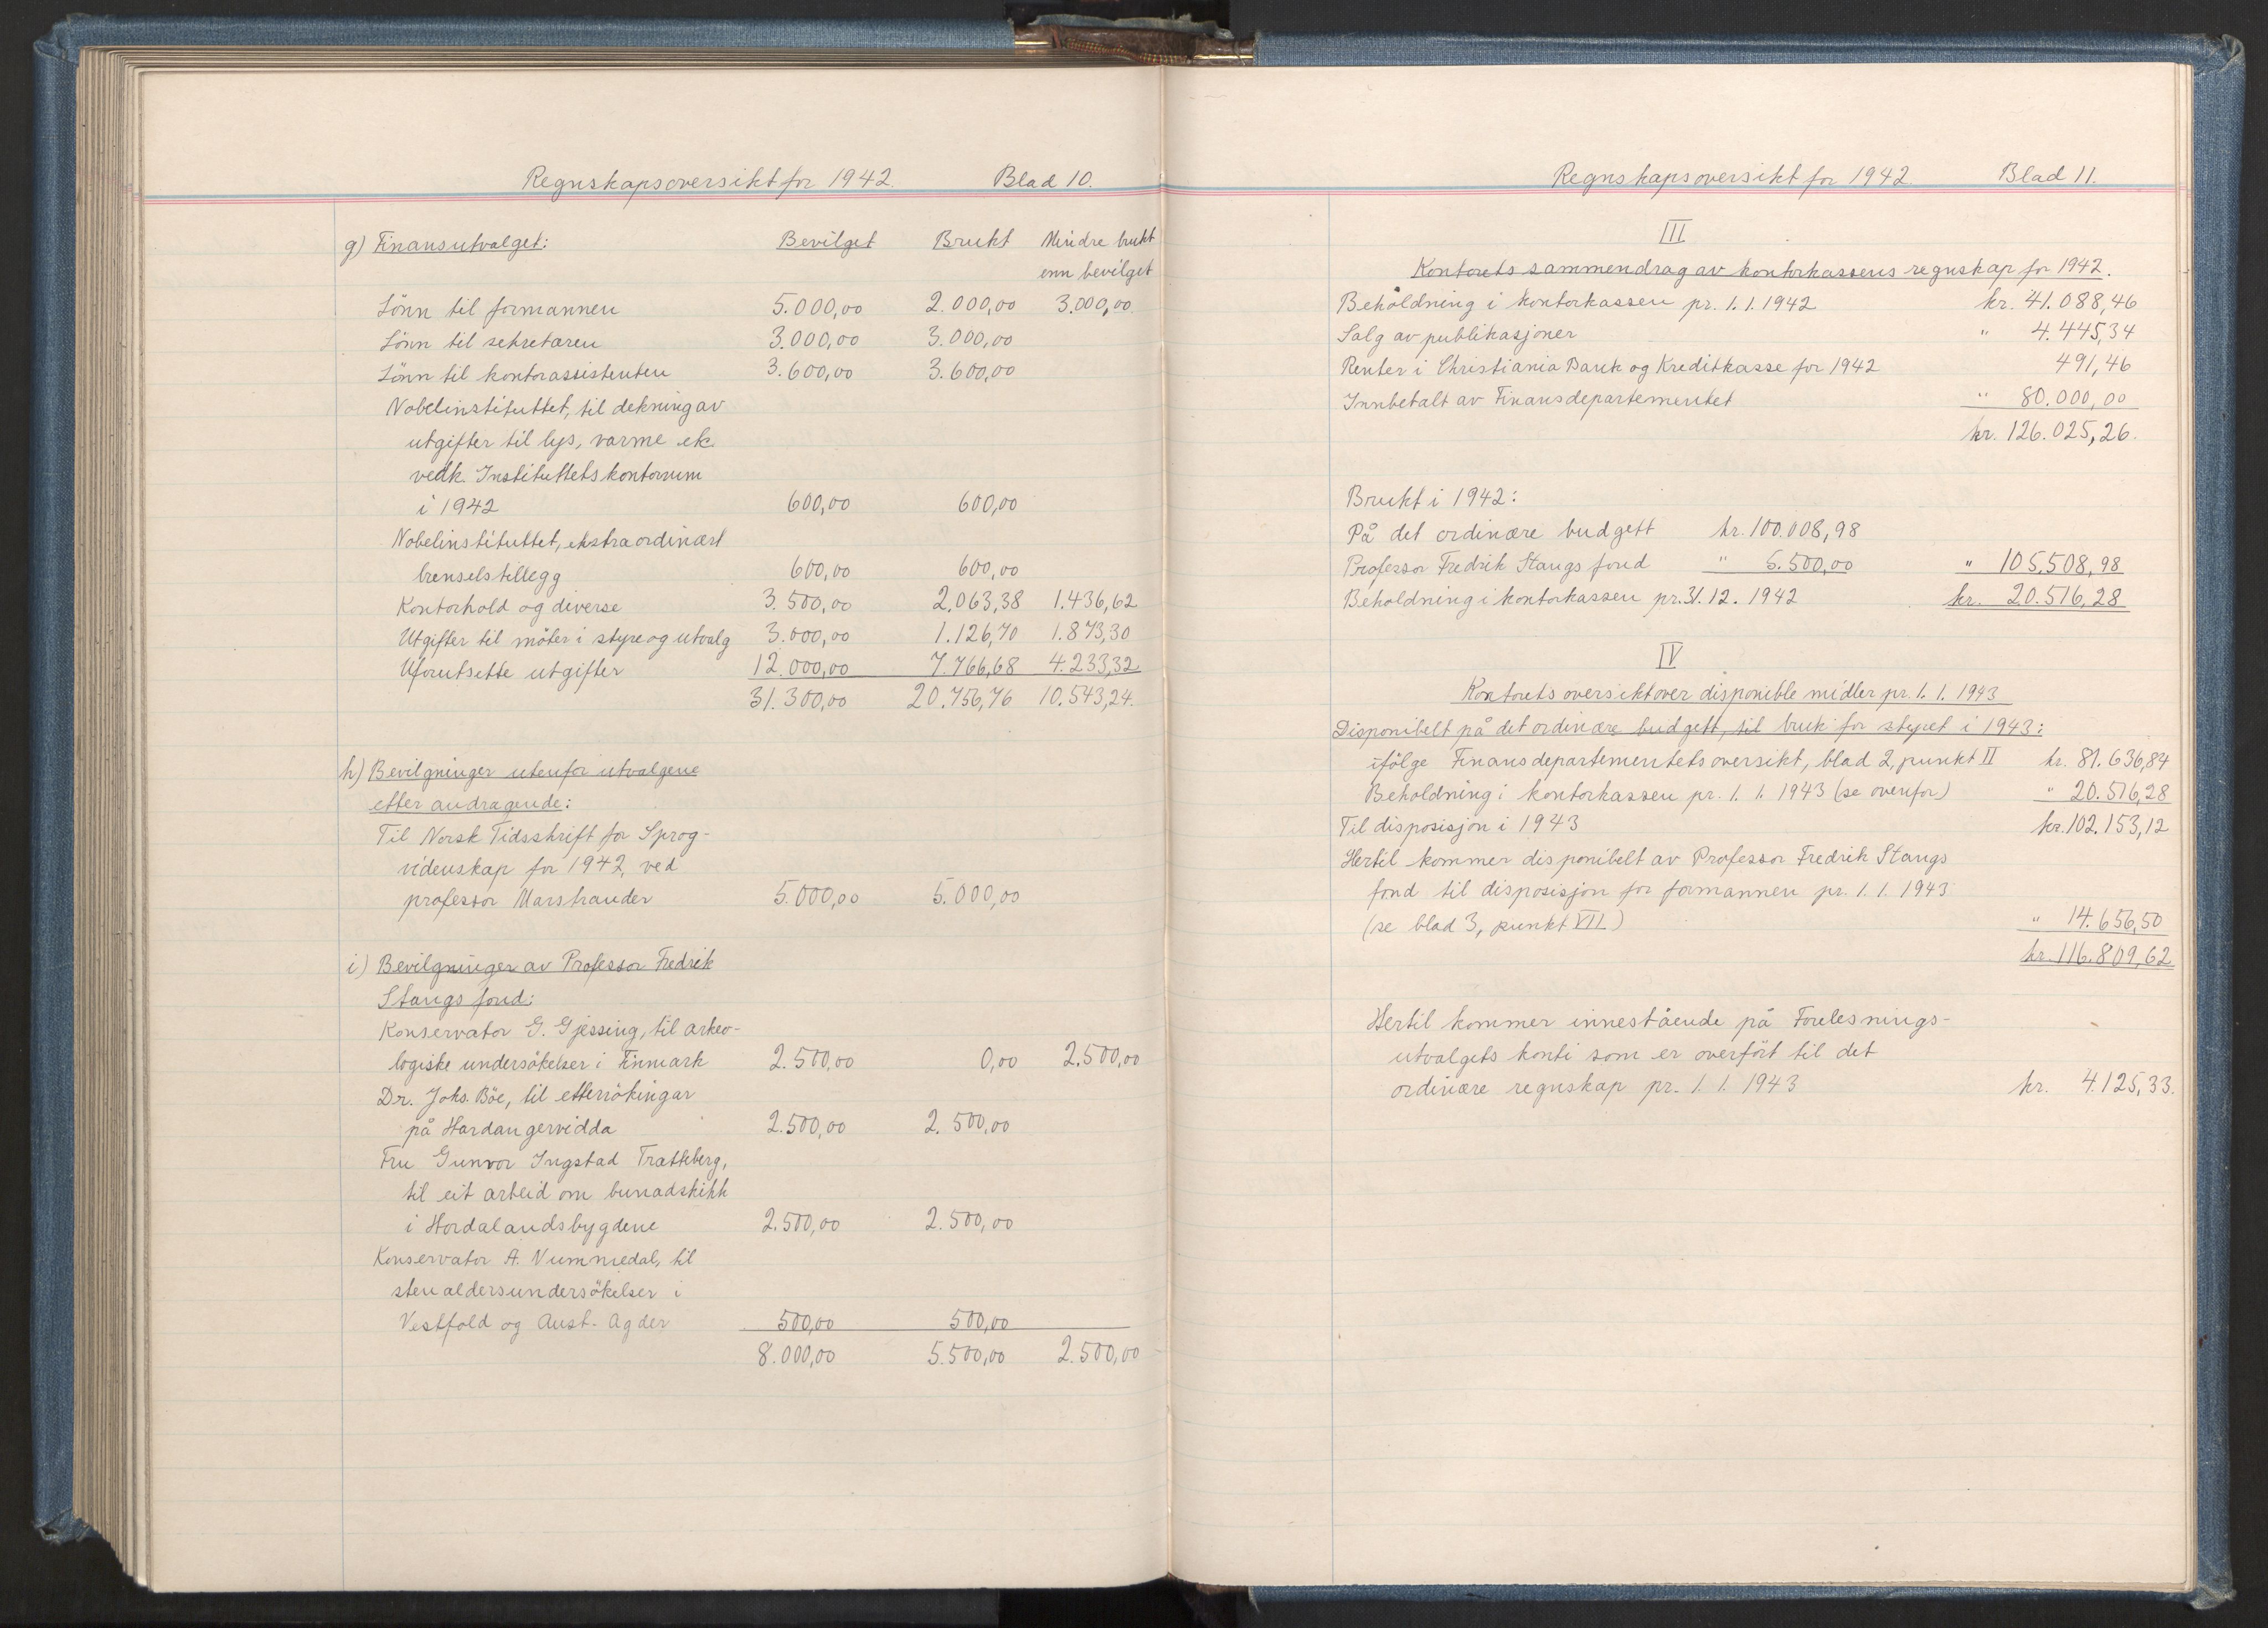 Regnskapsoversikt for 1942. Blad 10.
g) Finansutvalget: Bevilget Brukt Mindre brukt
enn bevilget
Lönn til formannen 5.000,00 2.000,00 3.000,00
Lönn til sekretæren 3.000,00 3.000,00
Lönn til kontorassistenten 3.600,00 3.600,00
Nobelinstituttet, til dekning av
utgifter til lys, varme etc.
vedk. Instituttets kontorrum
i 1942 600,00 600,00
Nobelinstituttet, ekstraordinært
brenselstillegg 600,00 600,00
Kontorhold og diverse 3.500,00 2.063,38 1.436,62
Utgifter til möter i styre og utvalg 3.000,00 1.126,70 1.873,30
Uforutsette utgifter 12.000,00 7.766,68 4.233,32
31.300,00 20.756,76 10.543,24.
h) Bevilgninger utenfor utvalgene
etter andragende:
Til Norsk Tidsskrift for Sprog-
videnskap for 1942, ved
professor Marstrander 5.000,00 5.000,00
i) Bevilgninger av Professor Fredrik
Stangs fond:
Konservator G. Gjessing, til arkeo-
logiske undersökelser i Finmark 2.500,00 0,00 2.500,00
Dr. Johs. Böe, til ettersökingar
på Hardangervidda 2.500,00 2.500,00
Fru Gunvor Ingstad Trætteberg,
til eit arbeid om bunadskikk
i Hordalandsbygdene 2.500,00 2.500,00
Konservator A. Nummedal, til
stenaldersundersökelser i
Vestfold og Aust-Agder 500,00 500,00
8.000,00 5.500,00 2.500,00
Regnskapsoversikt for 1942. Blad 11.
III
Kontorets sammendrag av kontorkassens regnskap for 1942.
Beholdning i kontorkassen pr. 1.1.1942 kr. 41.088,46
Salg av publikasjoner " 4.445,34
Renter i Christiania Bank og Kreditkasse for 1942 491,46
Innbetalt av Finansdepartementet " 80.000,00
kr. 126.025,26.
Brukt i 1942:
På det ordinære budgett kr. 100.008,98
Professor Fredrik Stangs fond " 5.500,00 " 105.508,98
Beholdning i kontorkassen pr. 31.12.1942 kr. 20.516,28
IV
Kontorets oversikt over disponible midler pr. 1.1.1943
Disponibelt på det ordinære budgett, til bruk for styret i 1943:
ifölge Finansdepartementets oversikt, blad 2, punkt II kr. 81.636,84
Beholdning i kontorkassen pr. 1.1.1943 (se ovenfor) " 20.516,28
Til disposisjon i 1943 kr. 102.153,12
Hertil kommer disponibelt av Professor Fredrik Stangs
fond til disposisjon for formannen pr. 1.1.1943
(se blad 3, punkt VII) " 14.656,50
kr. 116.809,62
Hertil kommer innestående på Forelesnings-
utvalgets konti som er overfört til det
ordinære regnskap pr. 1.1.1943 kr. 4.125,33.